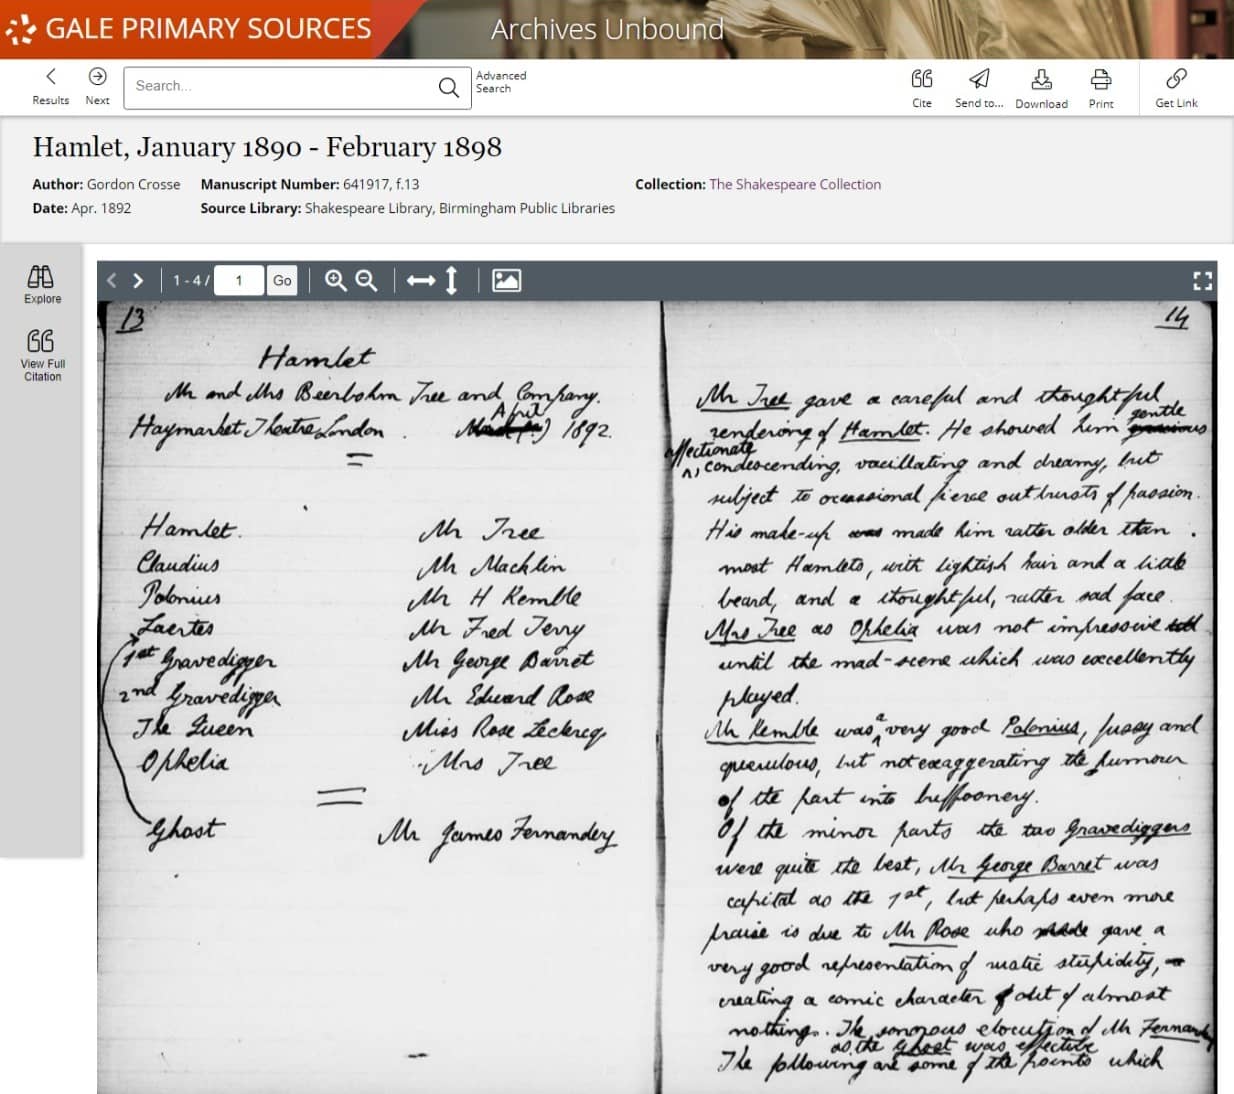 GALE PRIMARY SOURCES
Archives Unbound
Results
Next
Search...
Advanced Search
Cite
Send to...
Download
Print
Get Link
Hamlet, January 1890 - February 1898
Author: Gordon Crosse Manuscript Number: 641917, f.13 Collection: The Shakespeare Collection
Date: Apr. 1892 Source Library: Shakespeare Library, Birmingham Public Libraries
Explore
View Full Citation
1 - 4 / 1 Go
13
Hamlet
Mr and Mrs Beerbohm Tree and Company.
April
Haymarket Theatre London. 1892.
Hamlet. Mr Tree
Claudius Mr Macklin
Polonius Mr H Kemble
Laertes Mr Fred Terry
1st Gravedigger Mr George Barret
2nd Gravedigger Mr Edward Rose
The Queen Miss Rose Leclercq
Ophelia Mrs Tree
Ghost Mr James Fernandez
14
Mr Tree gave a careful and thoughtful
gentle
rendering of Hamlet. He showed him gracious
affectionate
condescending, vacillating and dreamy, but
subject to occassional fierce outbursts of passion.
His make-up was made him rather older than
most Hamlets, with lightish hair and a little
beard, and a thoughtful, rather sad face.
Mrs Tree as Ophelia was not impressive till
until the mad-scene which was excellently
played.
Mr Kemble was a very good Polonius, fussy and
querulous, but not exaggerating the humour
of the part into buffoonery.
Of the minor parts the two Gravediggers
were quite the best, Mr George Barret was
capital as the 1st, but perhaps even more
praise is due to Mr Rose who made gave a
very good representation of rustic stupidity,
creating a comic character out of almost
nothing. The sonorous elocution of Mr Fernandez
as the Ghost was effective
The following are some of the points which